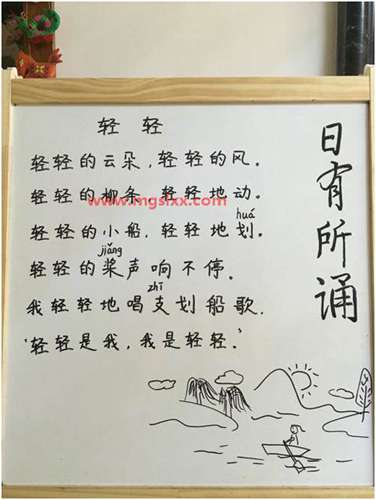 轻轻
轻轻的云朵，轻轻的风。
轻轻的柳条，轻轻地动。
www.mgsfxx.com
huá
轻轻的小船，轻轻地划。
jiǎng
轻轻的桨声响不停。
zhī
我轻轻地唱支划船歌，
“轻轻是我，我是轻轻。”
日有所诵